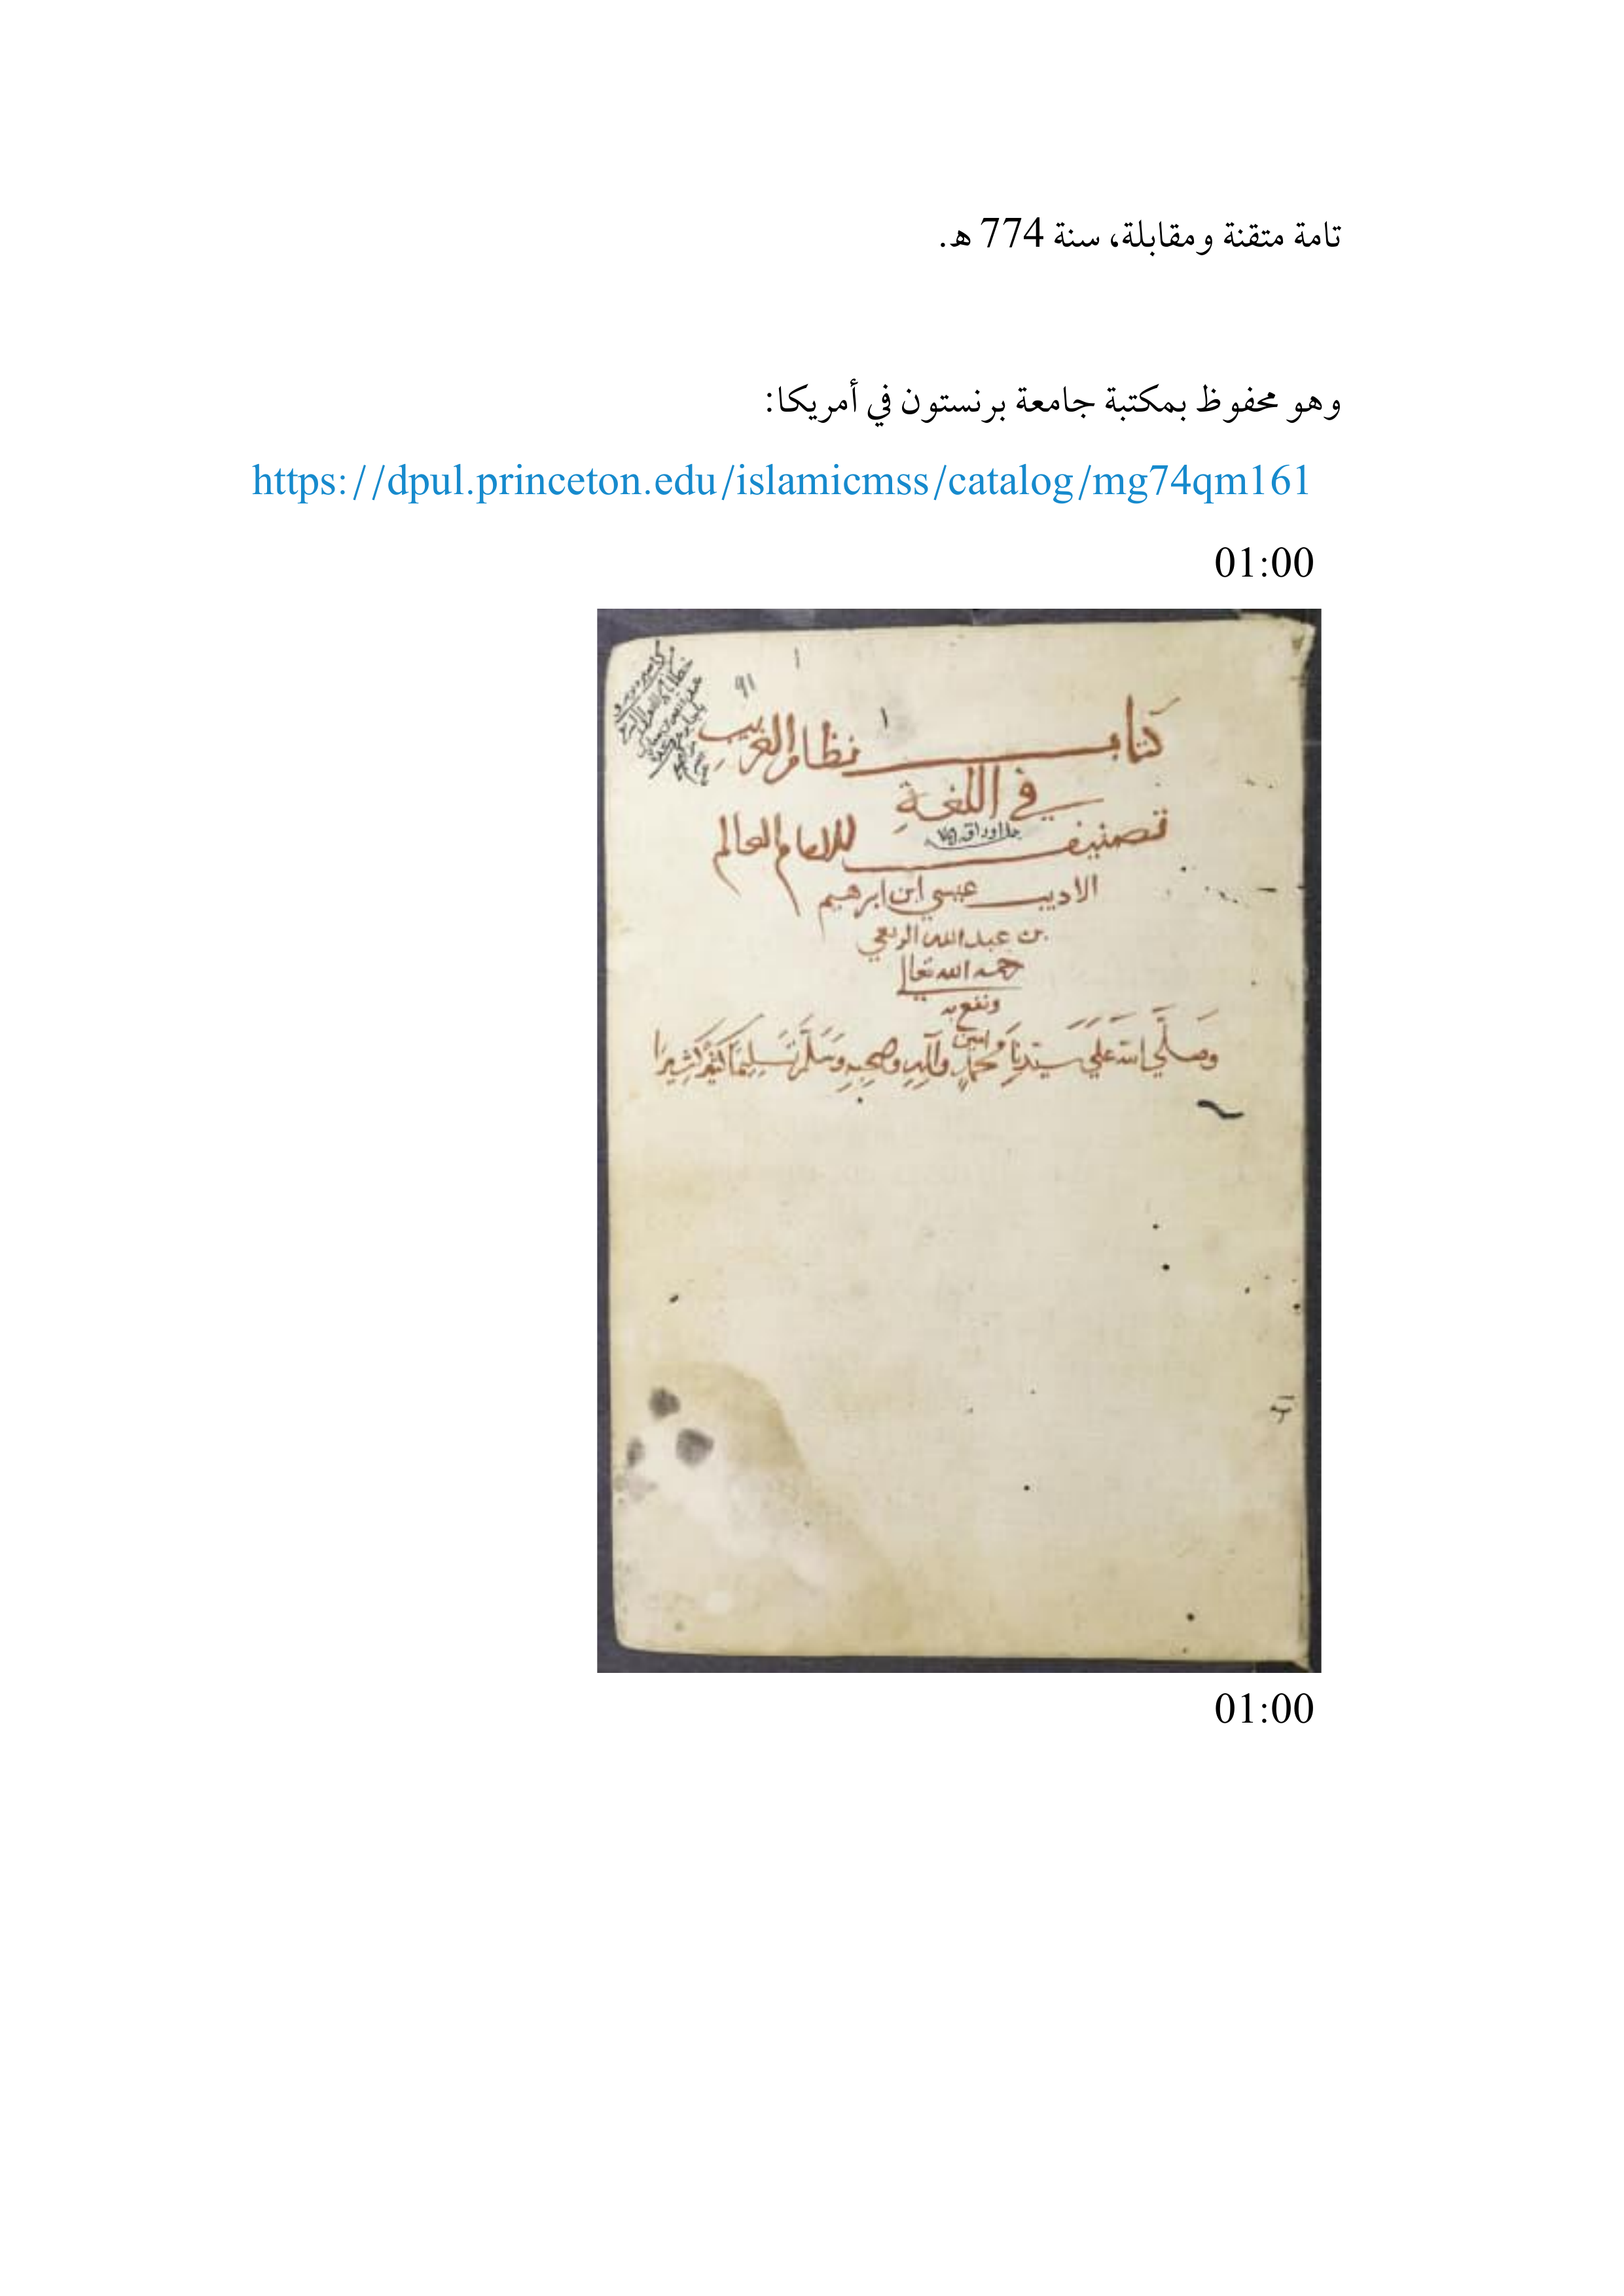 تامة متقنة ومقابلة، سنة 774 هـ.
وهو محفوظ بمكتبة جامعة برنستون في أمريكا:
https://dpul.princeton.edu/islamicmss/catalog/mg74qm161
01:00
١
٩١
١
كتاب نظام الغريب
في اللغة
تصنيف للامام العالم
الاديب عيسي ابن ابرهيم
بن عبد الله الربعي
رحمه الله تعالي
ونفع به
امين
وَصَلَّي الله عَلَي سَيّدِنَا مُحمدٍ وآلِهِ وصَحبِهِ وَسَلَّمَ تَسلِيمًا كَثِيرًا كَثِيرَا
01:00